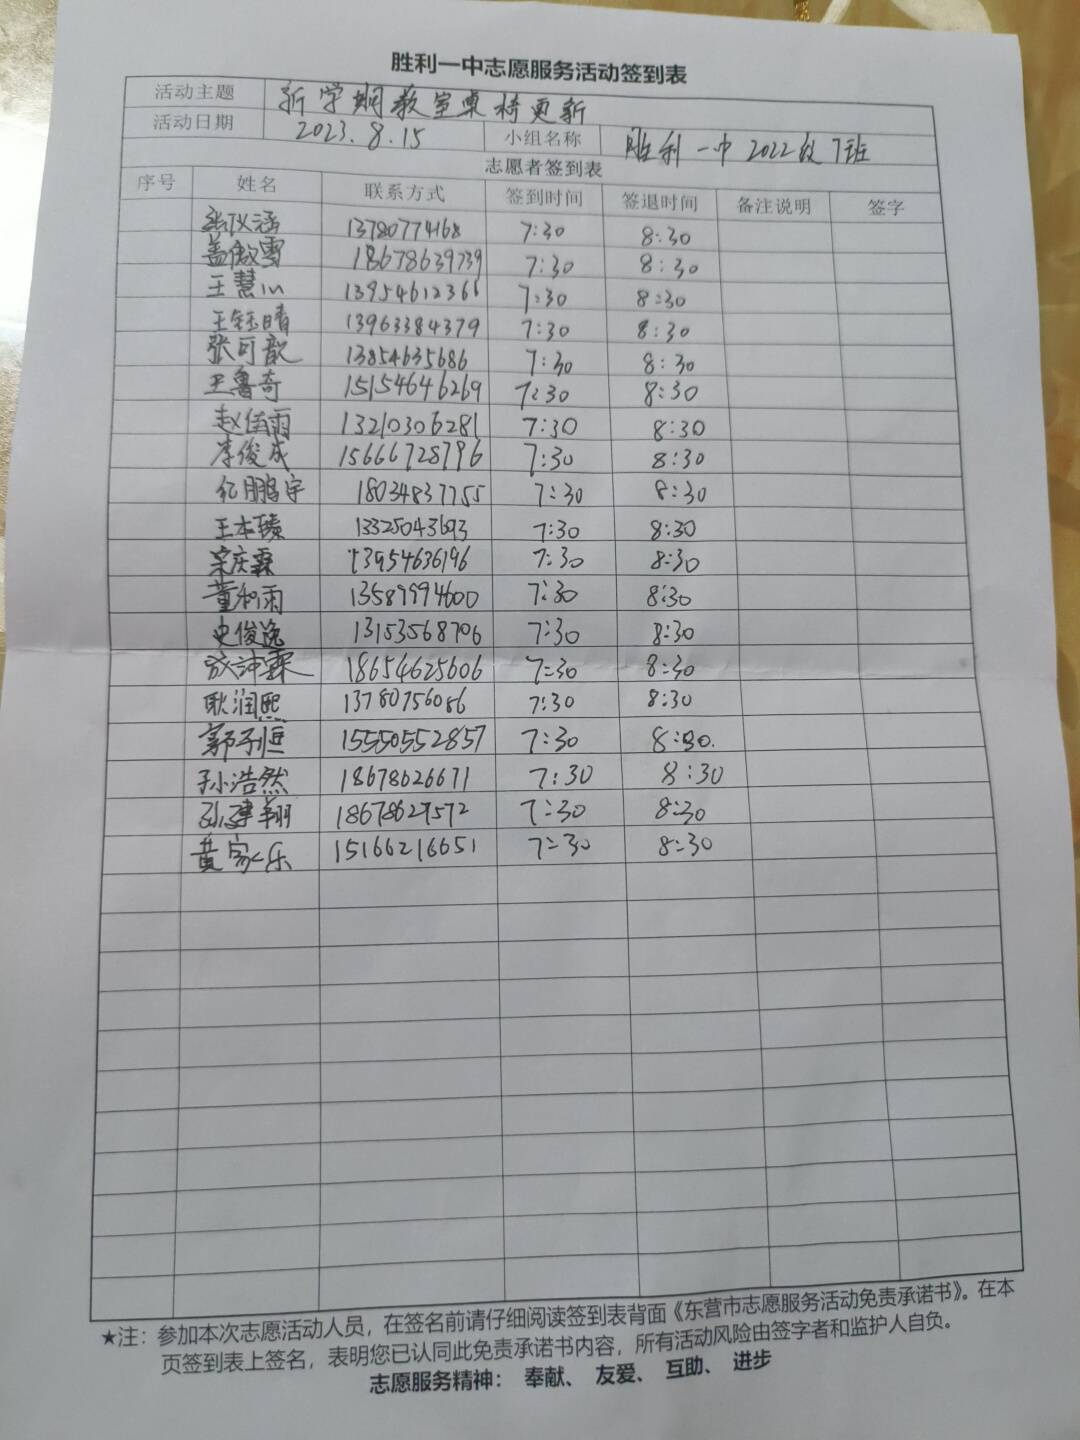 胜利一中志愿服务活动签到表
活动主题 新学期教室桌椅更新
活动日期 2023.8.15 小组名称 胜利一中2022级7班
志愿者签到表
序号 姓名 联系方式 签到时间 签退时间 备注说明 签字
张仪涵 13780774168 7:30 8:30
盖傲雪 18678639739 7:30 8:30
王慧 13954612366 7:30 8:30
王钰晴 13963384379 7:30 8:30
张可歆 13854635686 7:30 8:30
王鲁奇 15154646269 7:30 8:30
赵佳雨 13210306281 7:30 8:30
李俊成 15666728796 7:30 8:30
纪鹏宇 18034837755 7:30 8:30
王本臻 13325043693 7:30 8:30
宗庆霖 13954636196 7:30 8:30
董和雨 13589994600 7:30 8:30
史俊逸 13153568706 7:30 8:30
霖 18654625606 7:30 8:30
耿润熙 13780756086 7:30 8:30
郭子恒 15550552857 7:30 8:30.
孙浩然 18678626671 7:30 8:30
孙建翔 18678627572 7:30 8:30
黄家乐 15166216651 7:30 8:30
★注：参加本次志愿活动人员，在签名前请仔细阅读签到表背面《东营市志愿服务活动免责承诺书》。在本
页签到表上签名，表明您已认同此免责承诺书内容，所有活动风险由签字者和监护人自负。
志愿服务精神： 奉献、 友爱、 互助、 进步